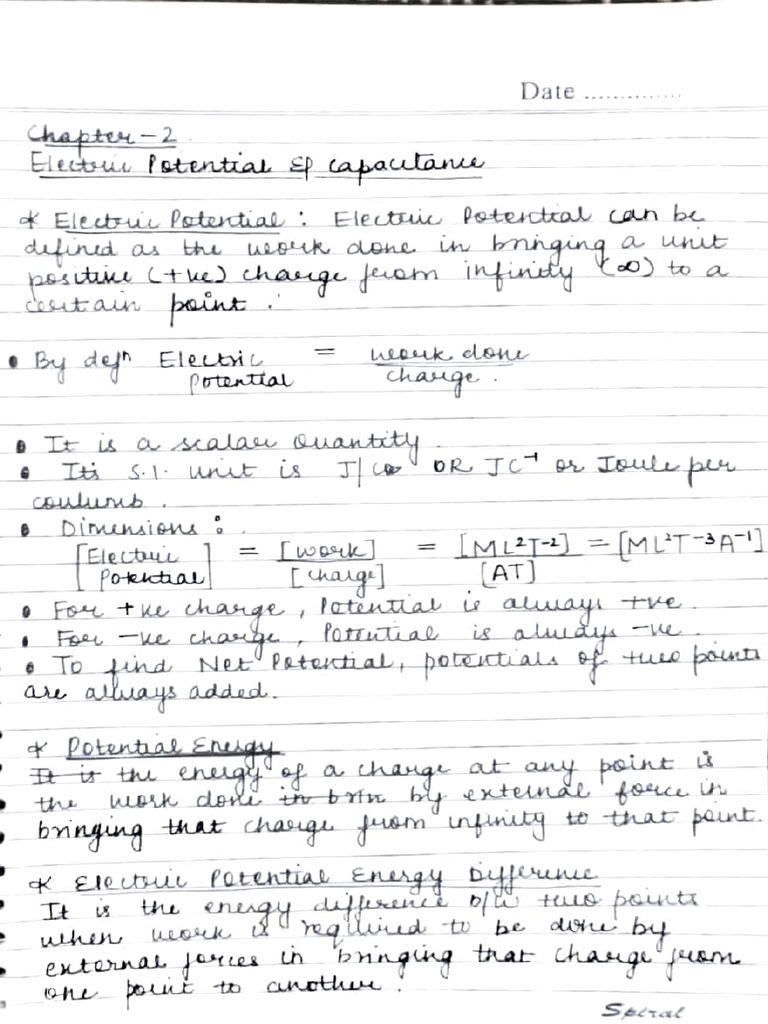 Date ..............
Chapter-2
Electric Potential & capacitance
* Electric Potential : Electric Potential can be
defined as the work done in bringing a unit
positive (+ve) charge from infinity (∞) to a
certain point.
• By defⁿ Electric Potential = work done / charge.
• It is a scalar quantity.
• It's S.I. unit is J/C OR JC⁻¹ or Joule per
coulumb.
• Dimensions :
[Electric Potential] = [work] / [charge] = [ML²T⁻²] / [AT] = [ML²T⁻³A⁻¹]
• For +ve charge, Potential is always +ve.
• For -ve charge, Potential is always -ve.
• To find Net Potential, potentials of two points
are always added.
* Potential Energy
It is the energy of a charge at any point is
the work done in brin by external force in
bringing that charge from infinity to that point.
* Electric Potential Energy Difference
It is the energy difference b/w two points
when work is required to be done by
external forces in bringing that charge from
one point to another.
Spiral